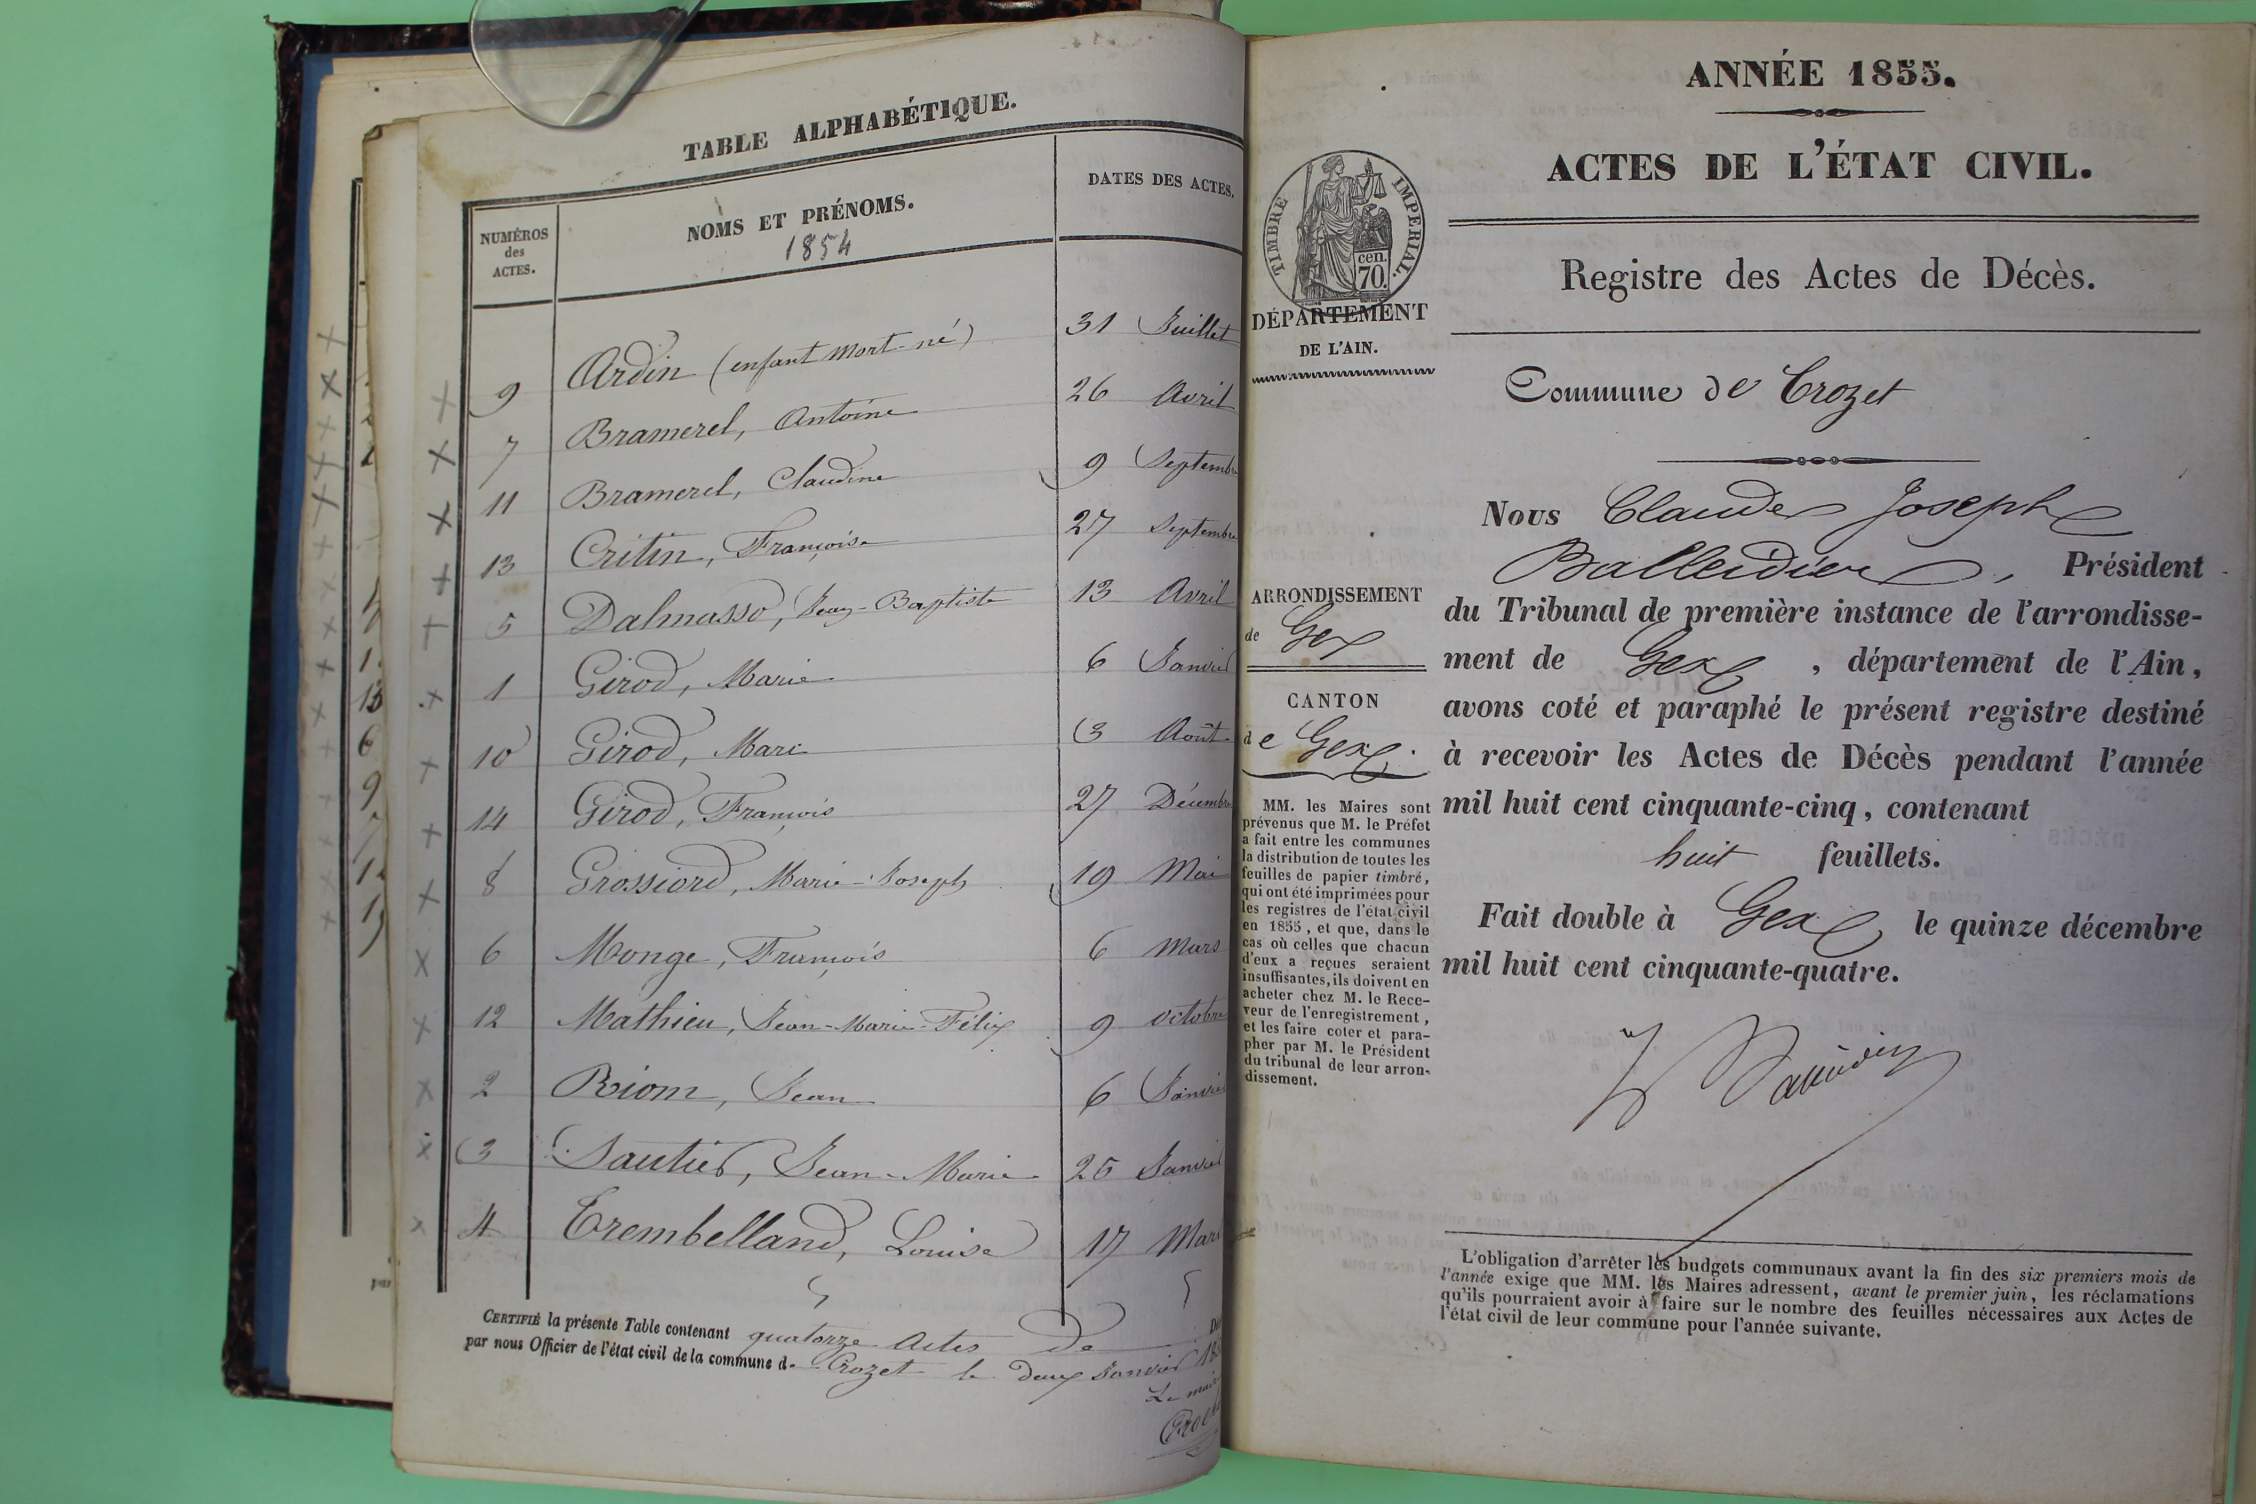 TABLE ALPHABÉTIQUE.
NUMÉROS
des
ACTES.
NOMS ET PRÉNOMS.
1854
DATES DES ACTES.
9 Ardin (enfant mort-né) 31 Juillet
7 Bramerel, Antoine 26 Avril
11 Bramerel, Claudine 9 Septembre
13 Critin, Françoise 27 Septembre
5 Dalmasso, Jean-Baptiste 13 Avril
1 Girod, Marie 6 Janvier
10 Girod, Marc 3 Août
14 Girod, François 27 Décembre
8 Grossiord, Marie-Joseph 19 Mai
6 Monge, François 6 Mars
12 Mathieu, Jean-Marie-Félix 9 octobre
2 Riom, Jean 6 Janvier
3 Sautier, Jean-Marie 25 Janvier
4 Trembelland, Louise 17 Mars
CERTIFIÉ la présente Table contenant quatorze Actes de
par nous Officier de l'état civil de la commune d. Crozet le deux Janvier
Le maire
ANNÉE 1855.
ACTES DE L'ÉTAT CIVIL.
Registre des Actes de Décès.
TIMBRE IMPERIAL.
cen.
70.
DÉPARTEMENT
DE L'AIN.
Commune de Crozet
ARRONDISSEMENT
de Gex
CANTON
de Gex.
MM. les Maires sont
prévenus que M. le Préfet
a fait entre les communes
la distribution de toutes les
feuilles de papier timbré,
qui ont été imprimées pour
les registres de l'état civil
en 1855, et que, dans le
cas où celles que chacun
d'eux a reçues seraient
insuffisantes, ils doivent en
acheter chez M. le Rece-
veur de l'enregistrement,
et les faire coter et para-
pher par M. le Président
du tribunal de leur arron-
dissement.
Nous Claude Joseph
Balleidier, Président
du Tribunal de première instance de l'arrondisse-
ment de Gex, département de l'Ain,
avons coté et paraphé le présent registre destiné
à recevoir les Actes de Décès pendant l'année
mil huit cent cinquante-cinq, contenant
huit feuillets.
Fait double à Gex le quinze décembre
mil huit cent cinquante-quatre.
L'obligation d'arrêter les budgets communaux avant la fin des six premiers mois de
l'année exige que MM. les Maires adressent, avant le premier juin, les réclamations
qu'ils pourraient avoir à faire sur le nombre des feuilles nécessaires aux Actes de
l'état civil de leur commune pour l'année suivante.